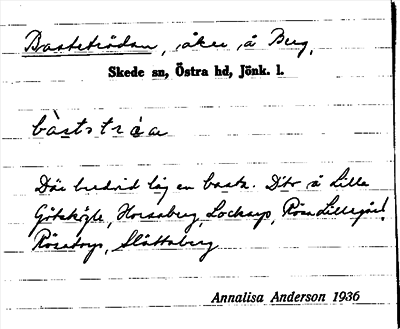 Basteträdan, åker å Berg,
Skede sn, Östra hd, Jönk. l.
bàststráa
Där bredvid låg en basta. Dito å Lilla
Götsközle, Horsaberg, Locksryd, Rösa Lillegård,
Rösatorp, Slättaberg
Annalisa Anderson 1936